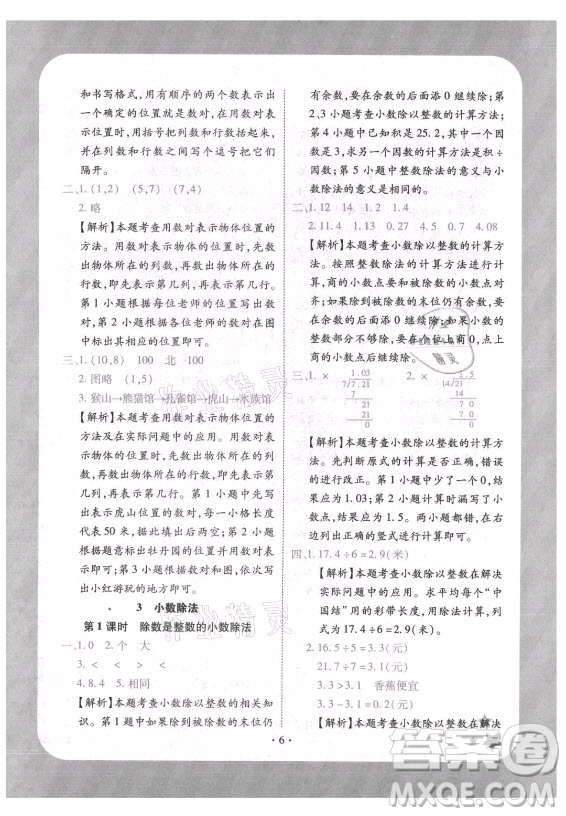 和书写格式，用有序的两个数表示出
一个确定的位置就是数对，用数对表
示位置时，用括号把列数和行数括起来，
并在列数和行数之间写个逗号把它们
隔开。
二、1.(1,2)　(5,7)　(7,4)
2.略
【解析】本题考查用数对表示物体位置的
方法。用数对表示物体的位置时，先数
出物体所在的列数，再数出物体所在的
行数，即先表示第几列，再表示第几行。
第 1 小题根据每位老师的位置写出数
对，第 2 小题根据各位老师的数对在图
中标出具体位置即可。
三、1.(10,8)　100　北　100
2.图略　(1,5)
3.猴山→熊猫馆→孔雀馆→虎山→水族馆
【解析】本题考查用数对表示物体位置的
方法及在实际问题中的应用。用数对
表示物体的位置时，先数出物体所在的
列数，再数出物体所在的行数，即先表示
第几列，再表示第几行。每一小格长度
代表 50 米，据此填出后两空；第 2 小题
根据题意标出牡丹园的位置，根据题中
虎山位置用数对表示；第 3 小题根据数对
写出小红游玩的地方即可。
3　小数除法
第 1 课时　除数是整数的小数除法
一、1.0　2.个　大
3.>　<　<　<
4.8.4　5.相同
【解析】本题考查小数除以整数的相关知
识。第 1 小题中如果除到被除数的末位仍
有余数，要在余数的后面添 0 继续除。第
2,3 小题考查小数除以整数的计算方法；
第 4 小题中已知积是 25.2，其中一个因
数是 3，求另一个因数的计算方法用除
法；第 5 小题中整数除法的意义与小数
除法的意义是相同的。
二、1.12　14　1.2　1.4
2.1.8　4.9　1.13　0.27　0.75　4.08
【解析】本题考查小数除以整数的计算方
法。按照整数除法的计算方法进行计
算，商的小数点要和被除数的小数点对
齐；如果除到被除数的末位仍有余数，要
在余数的后面添 0 继续除。如果小数的整
数部分不够除，要在个位上商 0，点上
小数点后继续除。
三、1.×　1.03　2.×　1.5
7/7.21　14/21
7　14
21　70
21　70
0　0
【解析】本题考查小数除以整数的计算方法。
先判断原式的计算是否正确，对错误
的进行改正。第 1 小题中商写错了，应
为 1.03；第 2 小题计算时商漏写了小
数点，应为 1.5。两小题都错，在错误的
后面打“×”，正确的竖式按小数除法的
计算方法计算即可。
四、1.17.4÷6=2.9(米)
【解析】本题考查小数除以整数在解决
实际问题中的应用。求平均每个“中国
结”用的米数，用除法计算，列式为
17.4÷6，结果为 2.9 米。
2.16.5÷5=3.3(元)
21.7÷7=3.1(元)
3.3>3.1　香蕉便宜
3.3-3.1=0.2(元)
【解析】本题考查小数除以整数在解决
·6·
作业精灵
作业精灵
答案圈
MXQE.COM